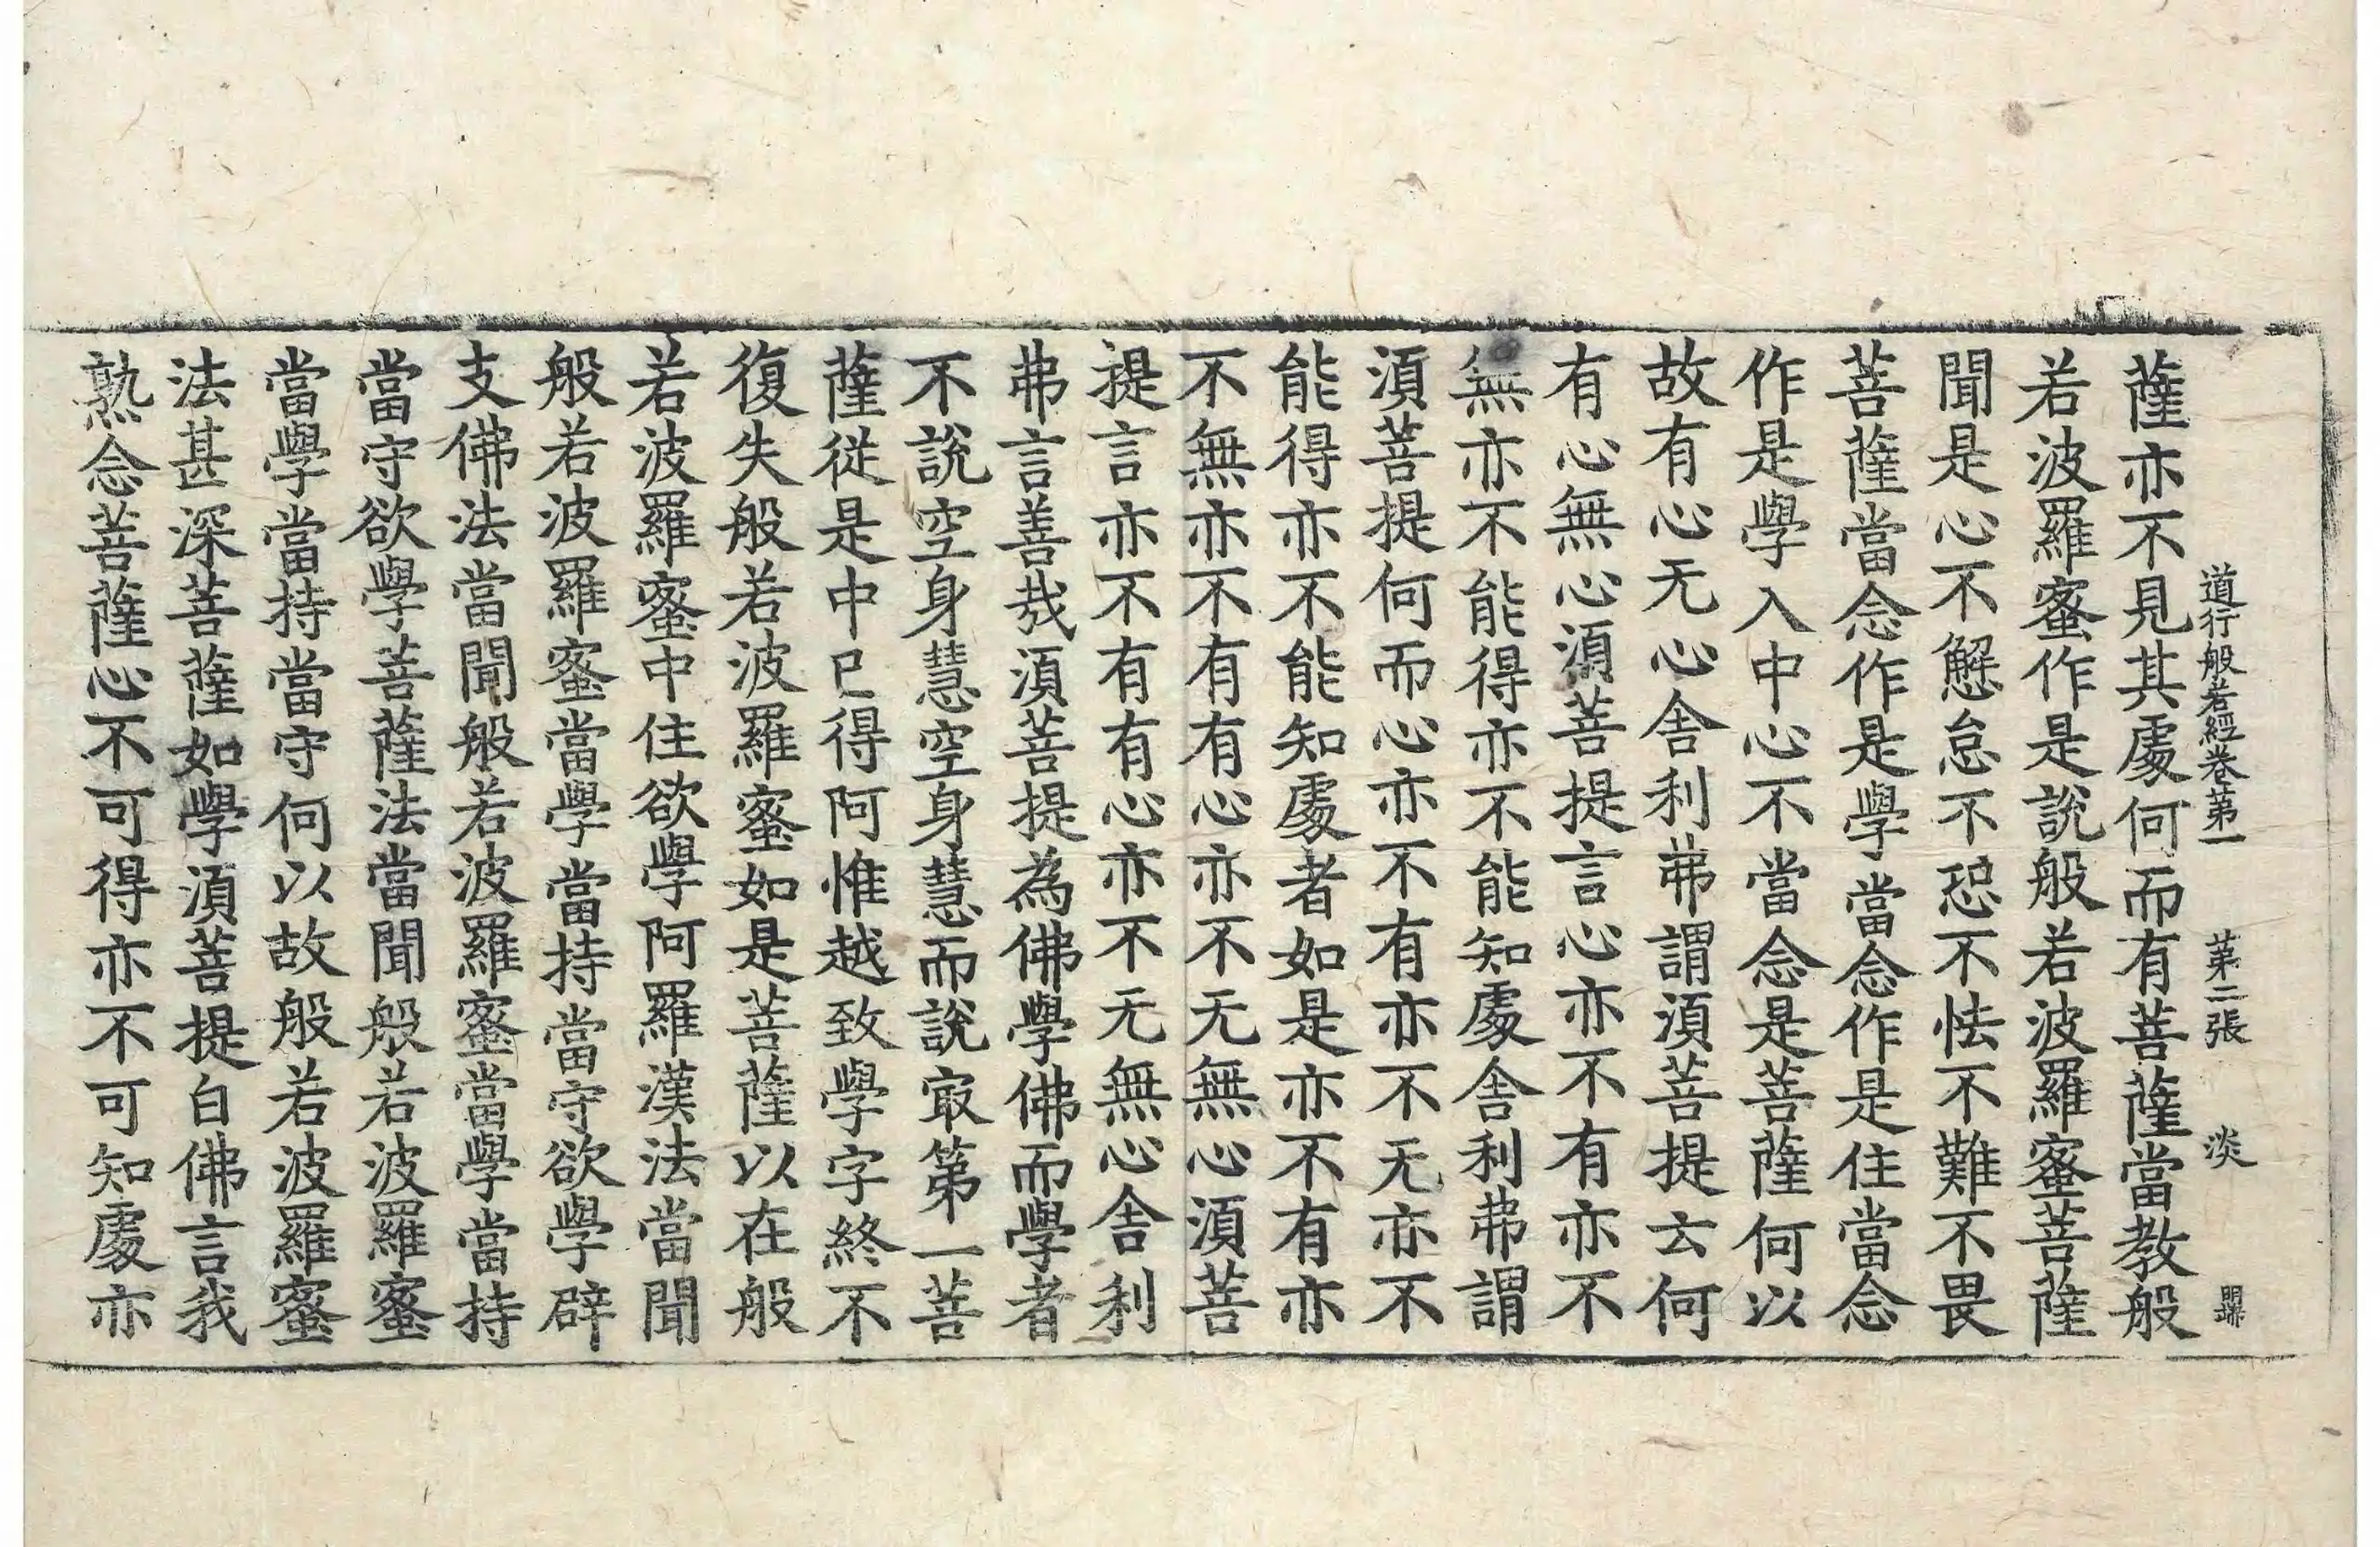 道行般若經卷第一 第二張 淡
薩亦不見其處何而有菩薩當教般
若波羅蜜作是說般若波羅蜜菩薩
聞是心不懈怠不恐不怯不難不畏
菩薩當念作是學當念作是住當念
作是學入中心不當念是菩薩何以
故有心无心舍利弗謂須菩提云何
有心無心須菩提言心亦不有亦不
無亦不能得亦不能知處舍利弗謂
須菩提何而心亦不有亦不无亦不
能得亦不能知處者如是亦不有亦
不無亦不有有心亦不无無心須菩
提言亦不有有心亦不无無心舍利
弗言善哉須菩提為佛學佛而學者
不說空身慧空身慧而說㝡第一菩
薩從是中已得阿惟越致學字終不
復失般若波羅蜜如是菩薩以在般
若波羅蜜中住欲學阿羅漢法當聞
般若波羅蜜當學當持當守欲學辟
支佛法當聞般若波羅蜜當學當持
當守欲學菩薩法當聞般若波羅蜜
當學當持當守何以故般若波羅蜜
法甚深菩薩如學須菩提白佛言我
熟念菩薩心不可得亦不可知處亦